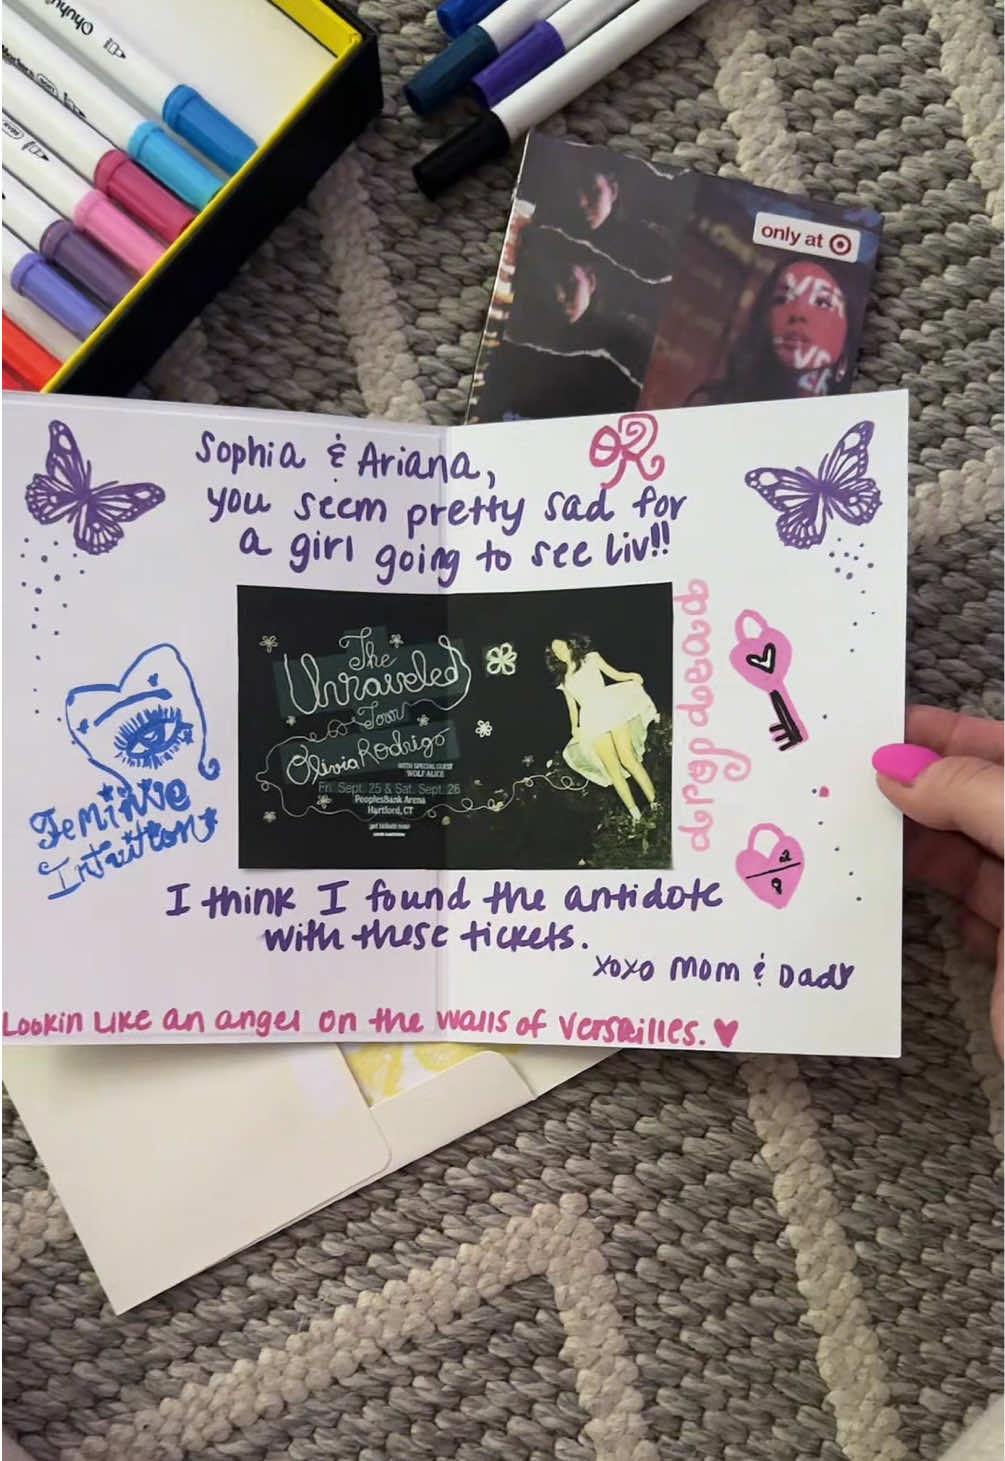 Ohuhu
only at
VER
VE
SA
OR
Sophia & Ariana,
you seem pretty sad for
a girl going to see Liv!!
The
Unraveled
Tour
Olivia Rodrigo
WITH SPECIAL GUEST
WOLF ALICE
Fri. Sept. 25 & Sat. Sept. 26
PeoplesBank Arena
Hartford, CT
get tickets now
drop dead
Feminine
Intuition
2
9
I think I found the antidote
with these tickets.
xoxo Mom & Dad
Lookin Like an angel on the walls of Versailles.